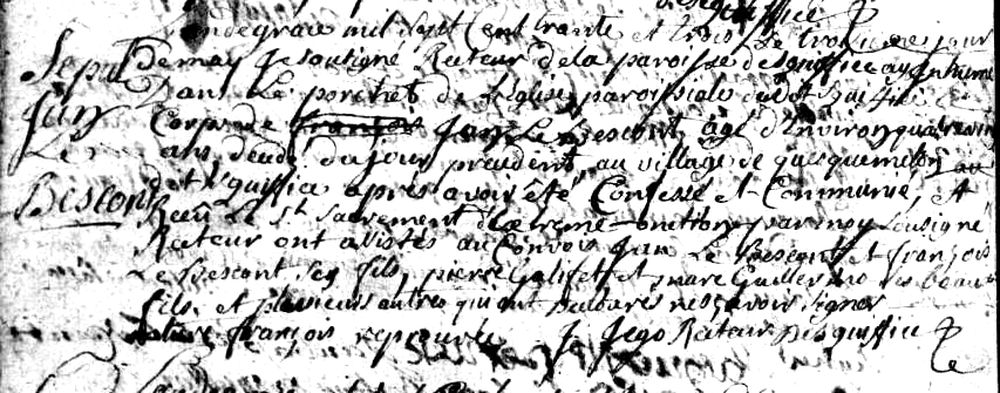 d'esquiffice
L'an de grace mil sept cent trante et trois le troisieme jour
Sepu de may Je soutigné Recteur de la paroisse desquiffice ay Inhumé
Dans Le porchet de Leglise paroissiale dudt Squiffice Le
Jan Corps de françois Jan Le Bescont, âgé d'Environ quatrevin
Le ans, décédé du jour précédent, au village de au
Bescont dit Squiffice après avoir été Confessé et Communié, et
Receu Le St Sacrement d'extreme-onction par moy sousigné
Recteur ont assistés au Convois Jan Le Bescont et françois
Le Bescont Ses fils, pierre Galifet et marc Guillermo ses beau
fils, et plusieurs autres qui ont declarés ne sçavoir signer
françois J. Jego Recteur Desquiffice